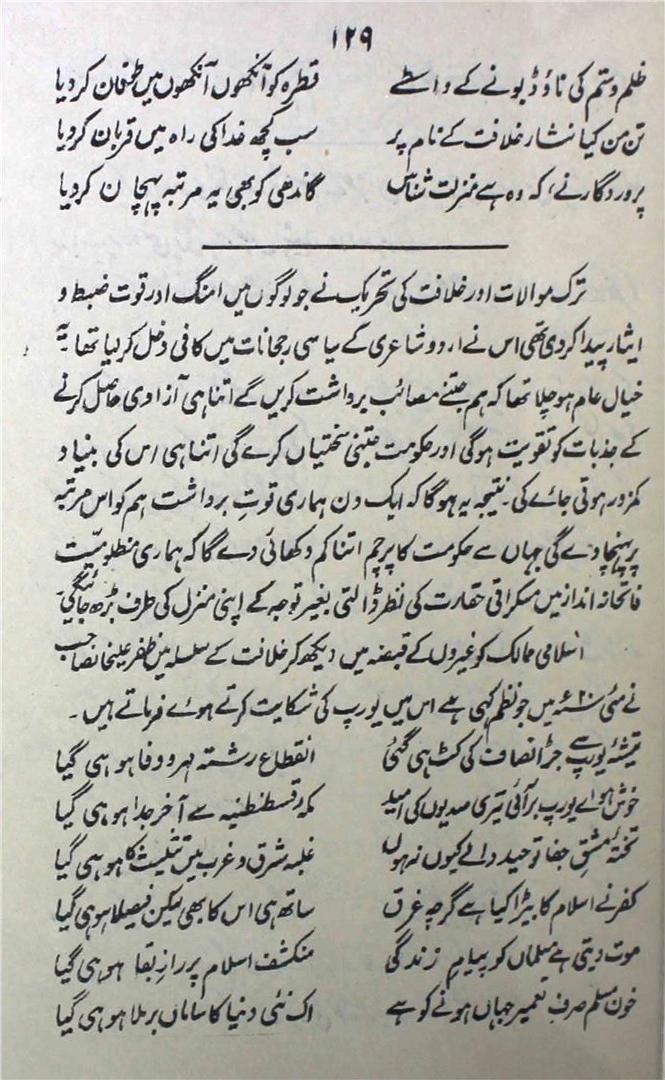 ۱۲۹
ظلم و ستم کی ناؤ ڈبونے کے واسطے قطرہ کو آنکھوں آنکھوں میں طوفان کر دیا
تن من کیا نثار خلافت کے نام پر سب کچھ خدا کی راہ میں قربان کر دیا
پروردگار نے، کہ وہ ہے منزلت شناس گاندھی کو بھی یہ مرتبہ پہچان کر دیا
ترک موالات اور خلافت کی تحریک نے جو لوگوں میں امنگ اور قوت ضبط و
ایثار پیدا کر دی تھی اس نے اردو شاعری کے سیاسی رجحانات میں کافی دخل کر لیا تھا۔ یہ
خیال عام ہو چلا تھا کہ ہم جتنے مصائب برداشت کریں گے اتنا ہی آزادی حاصل کرنے
کے جذبات کو تقویت ہوگی اور حکومت جتنی سختیاں کرے گی اتنا ہی اس کی بنیاد
کمزور ہوتی جائے گی۔ نتیجہ یہ ہوگا کہ ایک دن ہماری قوتِ برداشت ہم کو اس مرتبہ
پر پہنچا دے گی جہاں سے حکومت کا پرچم اتنا کم دکھائی دے گا کہ ہماری مظلومیّت
فاتحانہ انداز میں مسکراتی حقارت کی نظر ڈالتی بغیر توجہ کے اپنی منزل کی طرف بڑھ جائیگی۔
اسلامی ممالک کو غیروں کے قبضہ میں دیکھ کر خلافت کے سلسلہ میں ظفر علیخانصاحب
نے مئی ۲۰ء میں جو نظم کہی ہے اس میں یورپ کی شکایت کرتے ہوئے فرماتے ہیں۔
تیشۂ یورپ سے جڑ انصاف کی کٹ ہی گئی انقطاع رشتہ مہر و وفا ہو ہی گیا
خوش ہو اے یورپ بر آئی تیری صدیوں کی امید مکہ قسطنطنیہ سے آخر جدا ہو ہی گیا
تختۂ مشقِ جفا توحید والے کیوں نہ ہوں غلبہ شرق و غرب میں تثلیث کا ہو ہی گیا
کفر نے اسلام کا بیڑا کیا ہے گرچہ غرق ساتھ ہی اس کا بھی لیکن فیصلا ہو ہی گیا
موت دیتی ہے مسلماں کو پیامِ زندگی منکشف اسلام پر رازِ بقا ہو ہی گیا
خون مسلم صرفِ تعمیر جہاں ہونے کو ہے اک نئی دنیا کا ساماں برملا ہو ہی گیا